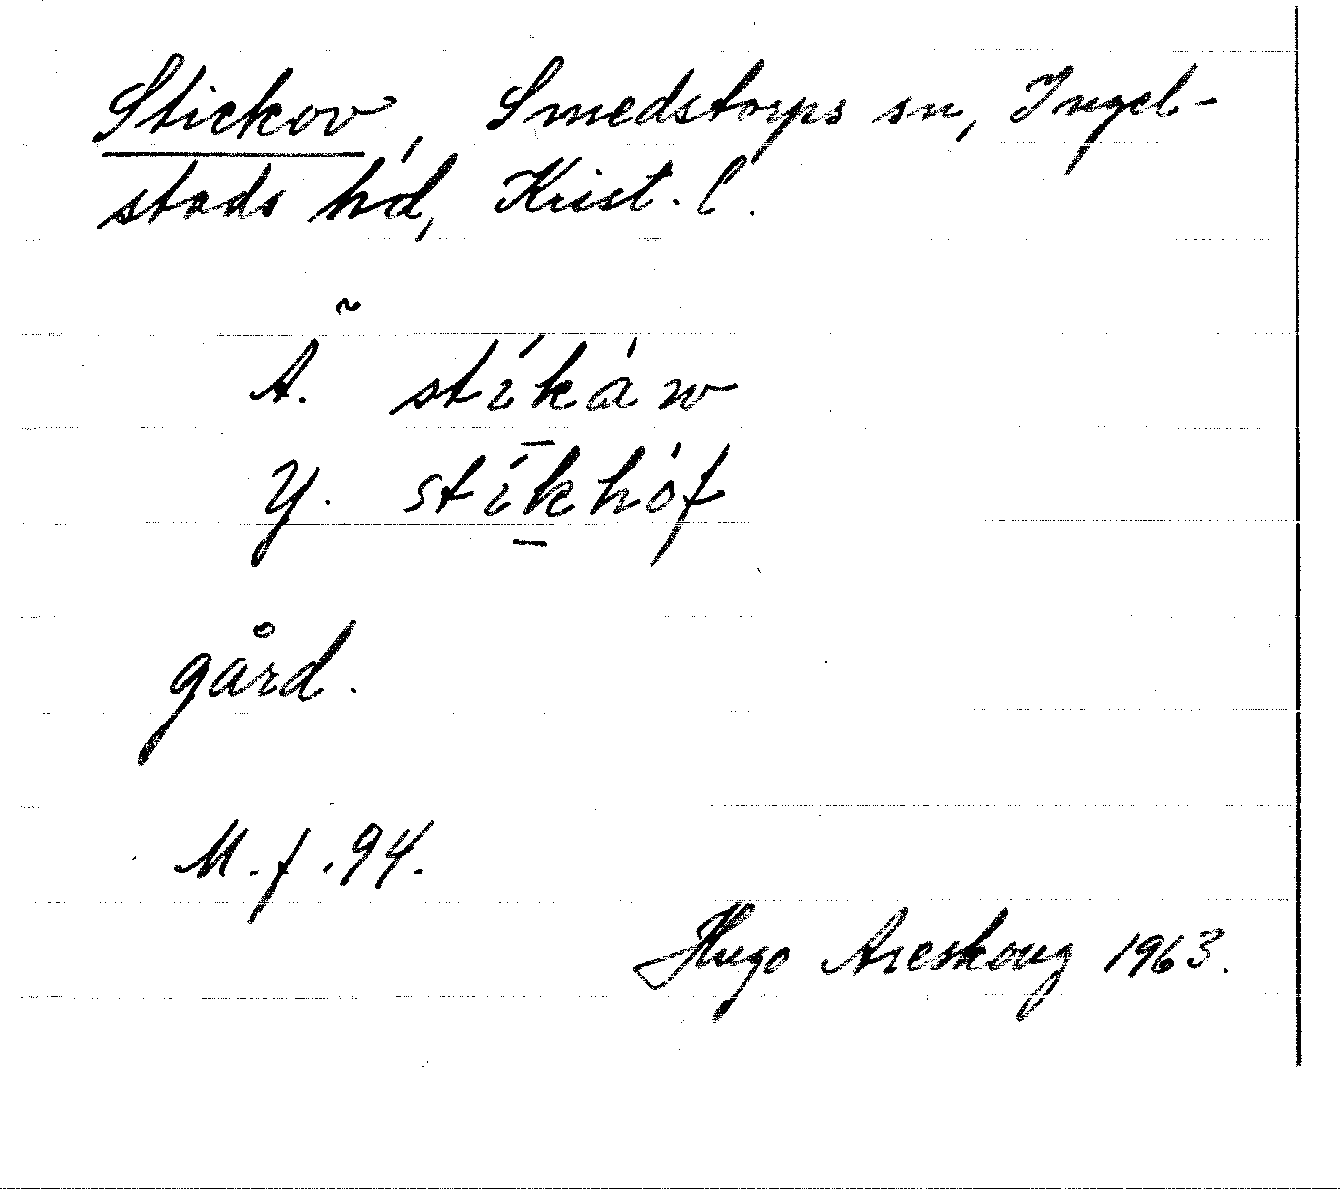 Stickov, Smedstorps sn, Ingel-
stads hd, Krist. l.
~
A. stíkàw
Y. stíkhòf
gård.
M.f.94.
Hugo Areskoug 1963.